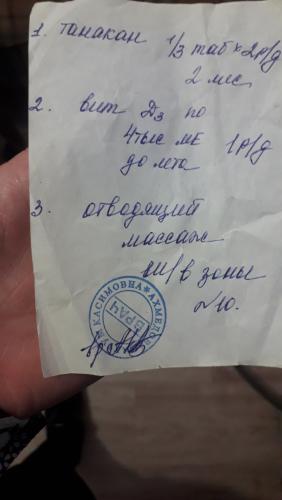 1. танакан 1/3 таб х 2р/д
2 мес
2. вит Д3 по
4тыс МЕ 1р/д
до лета
3. отводящий
массаж
ш/в зоны
№10.
КАСИМОВНА * АХМЕДОВА
ВРАЧ